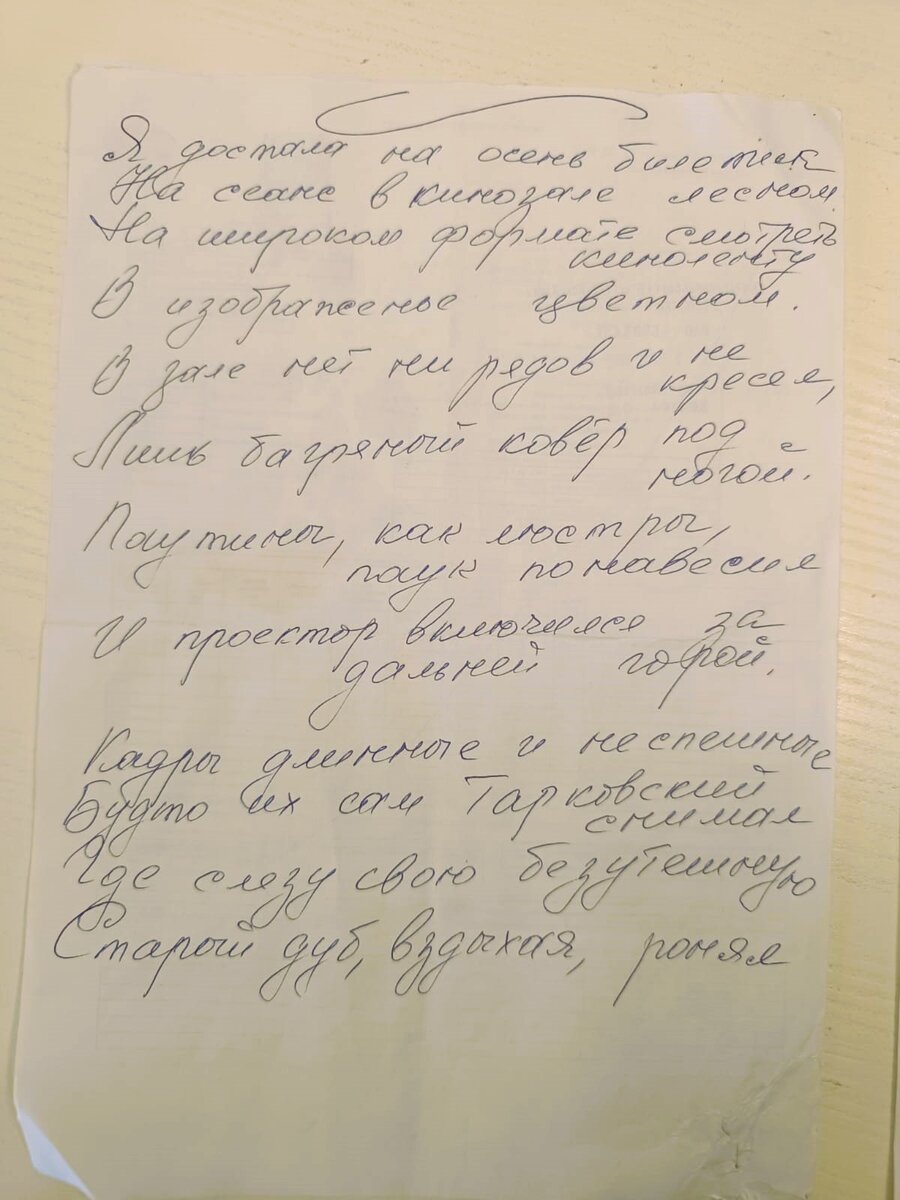 Я достала на осень билетик
На сеанс в кинозале лесном
На широком формате смотреть
киноленту
В изображенье цветном.
В зале нет ни рядов и не
кресел,
Лишь багряный ковёр под
ногой.
Паутины, как люстры,
паук понавесил
И проектор включился за
дальней горой.
Кадры длинные и неспешные
Будто их сам Тарковский
снимал
Где слезу свою безутешную
Старый дуб, вздыхая, ронял